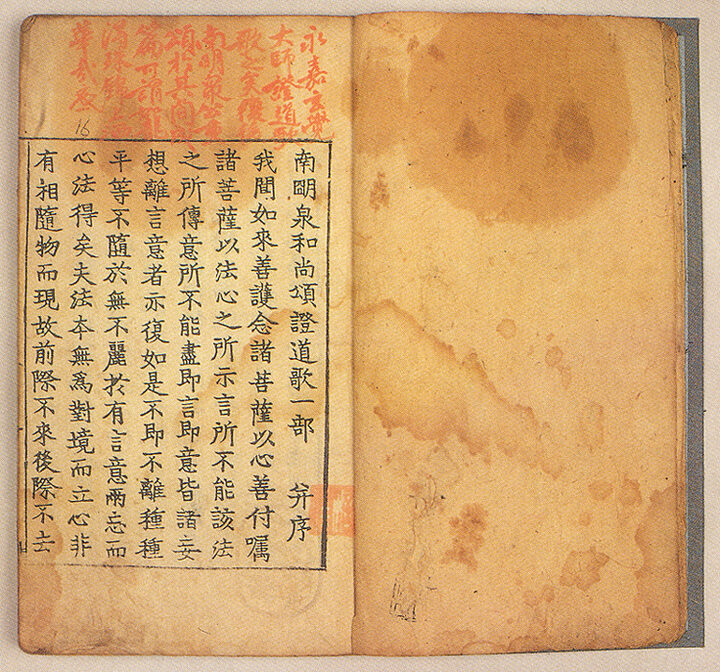 永嘉玄覺
大師證道
南明泉
16
南明泉和尚頌證道歌一部 并序
我聞如來善護念諸菩薩以心善付囑
諸菩薩以法心之所示言所不能該法
之所傳意所不能盡即言即意皆諸妄
想離言意者亦復如是不即不離種種
平等不隨於無不麗於有言意兩忘而
心法得矣夫法夲無爲對境而立心非
有相隨物而現故前際不來後際不去